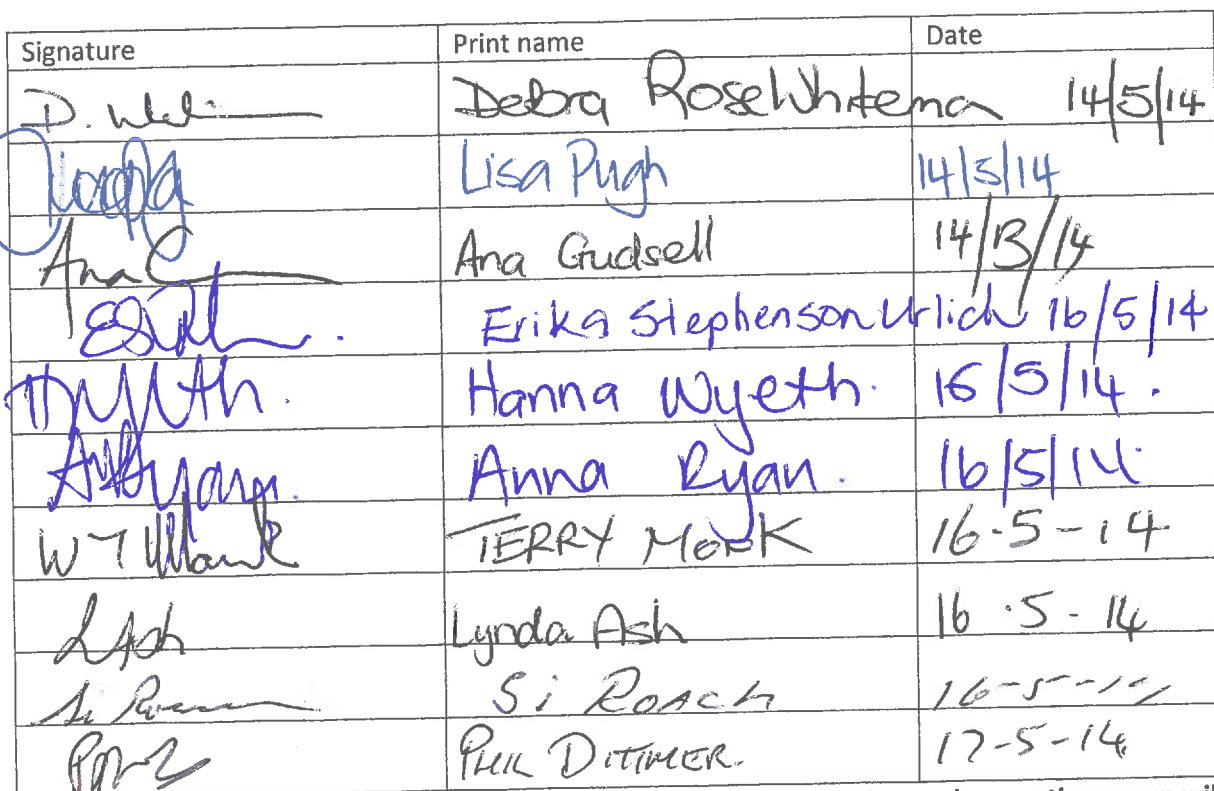 Signature Print name Date
D. Debra RoseWhitema 14/5/14
Lisa Pugh 14/5/14
Ana G Ana Gudsell 14/13/14
Erika Stephenson Urlich 16/5/14
Hanna Wyeth. 16/5/14.
Anna Ryan. 16/5/14
W T Monk TERRY MONK 16-5-14
L Ash Lynda Ash 16.5-14
Si Roach 16-5-14
PHIL DITTMER. 17-5-14